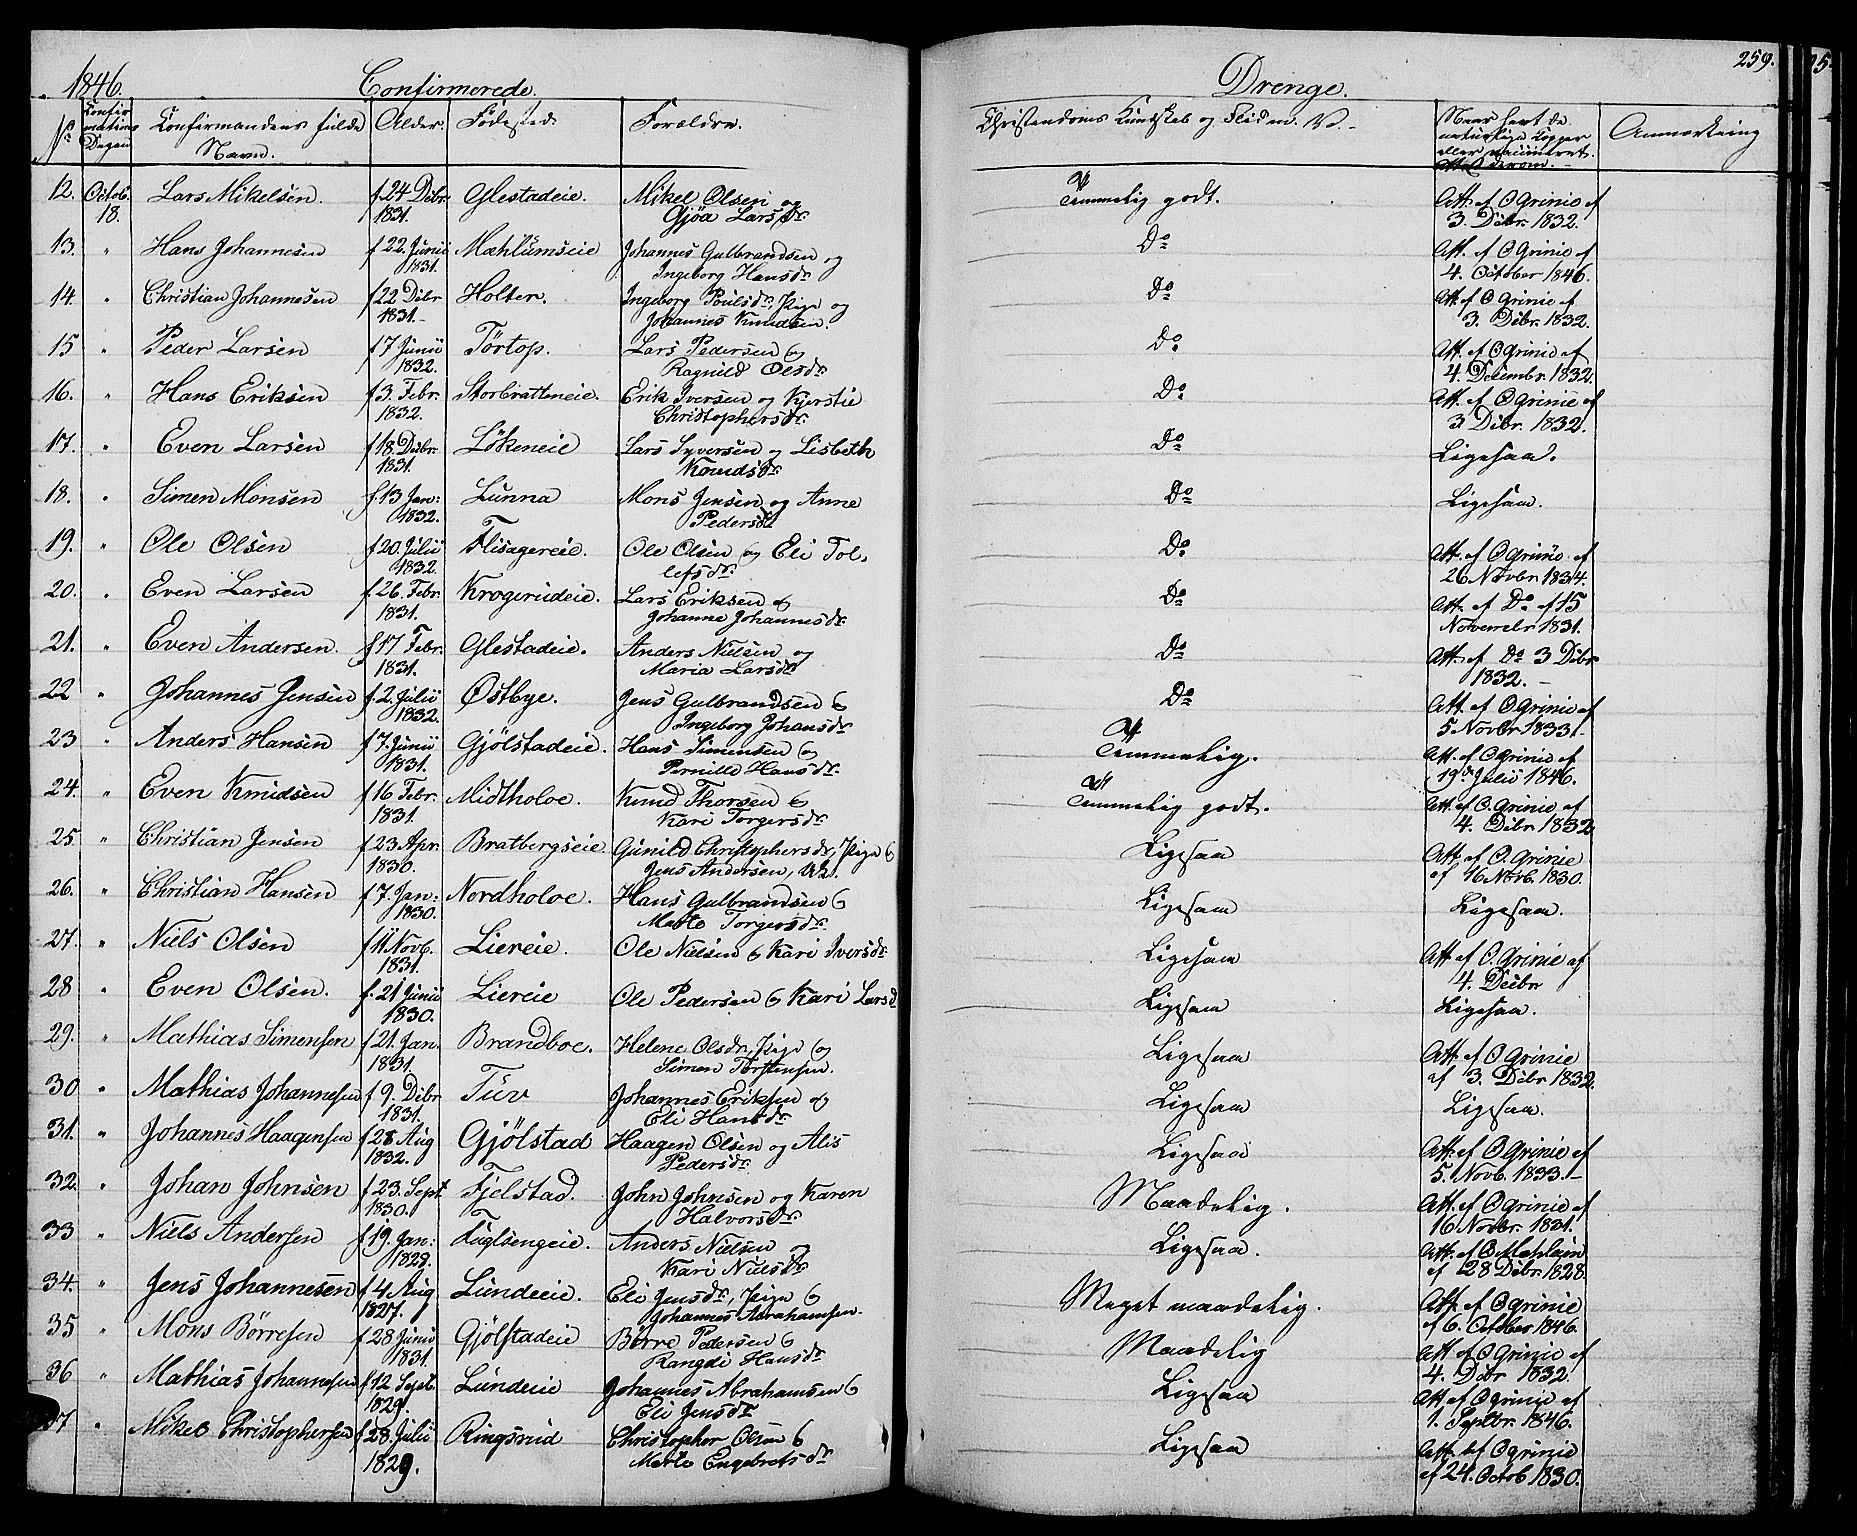 1846. Confirmerede. Drenge. 259.
No Confirmations Dagen Confirmandens fulde Navn. Alder. Födested. Forældre. Christendoms Kundskab og Flid m. V. Naar havt de naturlige Kopper eller vaccineret. Att. derom. Anmærkning
12. Octob. 18. Lars Mikelsen. f 24 Debr 1831. Glestadeie. Mikel Olsen og Gjöa Larsdr. Temmelig godt. Att. af O Grinie af 3. Debr. 1832.
13. " Hans Johannesen f 22. Junii 1831. Mæhlumseie Johannes Gulbrandsen og Ingeborg Hansdr. Do Att. af O Grinie af 4. October 1846.
14. " Christian Johannesen f 22 Debr 1831. Holter. Ingeborg Poulsdr. Pige og Johannes Knudsen. Do Att. af O Grinie af 3. Debr. 1832.
15 " Peder Larsen f 7 Junii 1832. Törtop. Lars Pedersen og Ragnild Olsdr. Do Att. af O Grinie af 4. Decembr. 1832.
16. " Hans Eriksen f 3. Febr. 1832. Storbratteneie. Erik Iversen og Kjerstie Christophersdr. Do Att. af O Grinie af 3 Debr. 1832.
17. " Even Larsen f 18. Debr. 1831. Lökeneie Lars Syversen og Lisbeth Knudsdr. Do Ligesaa.
18. " Simen Monsen f. 13 Jan: 1832. Lunna Mons Jensen og Anne Pedersdr. Do Ligesaa.
19. " Ole Olsen f 20. Julii 1832. Flisagereie. Ole Olsen og Eli Tollefsdr. Do Att. af O Grinie af 26 Novbr 1834.
20. " Even Larsen f. 26. Febr. 1831. Krogerudeie. Lars Eriksen og Johanne Johannesdr. Do Att. af Do. af 15 Novembr 1831.
21. " Even Andersen. f 17 Febr. 1831. Glestadeie. Anders Nielsen og Maria Larsdr. Do Att. af Do 3 Debr 1832.
22 " Johannes Jensen f. 2. Julii 1832. Østbye. Jens Gulbrandsen og Ingeborg Johansdr. Do Att. af O Grinie af 5 Novbr 1833.
23 " Anders Hansen f 7. Junii 1831. Gjölstadeie. Hans Simensen og Pernille Hansdr. Temmelig. Att. af O Grinie af 19de Julii 1846.
24. " Even Knudsen f 16 Febr. 1831. Midtholoe. Knud Thorsen og Kari Torgersdr. Temmelig godt. Att. af O. Grinie af 4. Debr 1832
25 " Christian Jensen f 23 Apr. 1830. Bratbergseie Gunild Christophersdr, Pige og Jens Andersen, Uæ. Ligesaa Att. af O. Grinie af 16 Novb. 1830.
26. " Christian Hansen f 7. Jan: 1830. Nordholoe. Hans Gulbrandsen og Marte Torgersdr. Ligesaa Ligesaa.
27. " Niels Olsen f 11 Novb. 1831. Liereie. Ole Nielsen og Kari Iversdr. Ligesaa Att. af O. Grinie af 4. Debr
28 " Even Olsen. f. 21 Junii 1830. Liereie Ole Pedersen og Kari Larsd Ligesaa Ligesaa.
29. " Mathias Simensen f 21. Jan. 1831. Brandboe. Helene Olsdr. Pige og Simen Torstensen. Ligesaa Att. af O Grinie af 3. Debr 1832.
30 " Mathias Johannesen f 9. Debr 1831. Tuv Johannes Eriksen og Eli Hansdr. Ligesaa Ligesaa.
31. " Johannes Haagensen f 28 Aug 1832. Gjölstad Haagen Olsen og Alis Pedersdr. Ligesaa Att. af O Grinie af 5. Novb. 1833.
32. " Johan Johnsen f 23. Sept. 1830. Fjelstad. John Johnsen og Karen Halvorsdr. Maadelig. Att. af O Grinie af 16 Novbr. 1831.
33 " Niels Andersen f 19. Jan: 1829. Fuglsengeie. Anders Nielsen og Kari Nielsdr Ligesaa. Att. af O Mæhlum af 28 Debr 1828.
34. " Jens Johannesen f 4 Aug 1827. Lundeeie. Eli Jensdr, Pige og Johannes Abrahamsen. Meget maadelig. Att. af O Grinie af 6. October 1846.
35 " Mons Börresen f 28 Junii 1831. Gjölstadeie Börre Pedersen og Rangdi Hansdr Maadelig Att. af O Grinie af 4. Debr 1832.
36 " Mathias Johannesen f 12 Septb. 1829. Lundeie Johannes Abrahamsen og Eli Jensdr Ligesaa Att. af O Grinie af 1. Septbr. 1846.
37 " Mikel Christophersen f 28. Julii 1829. Ringsrud Christopher Olsen og Marte Engebretsdr Ligesaa Att. af O Grinie af 24. Octob 1830.